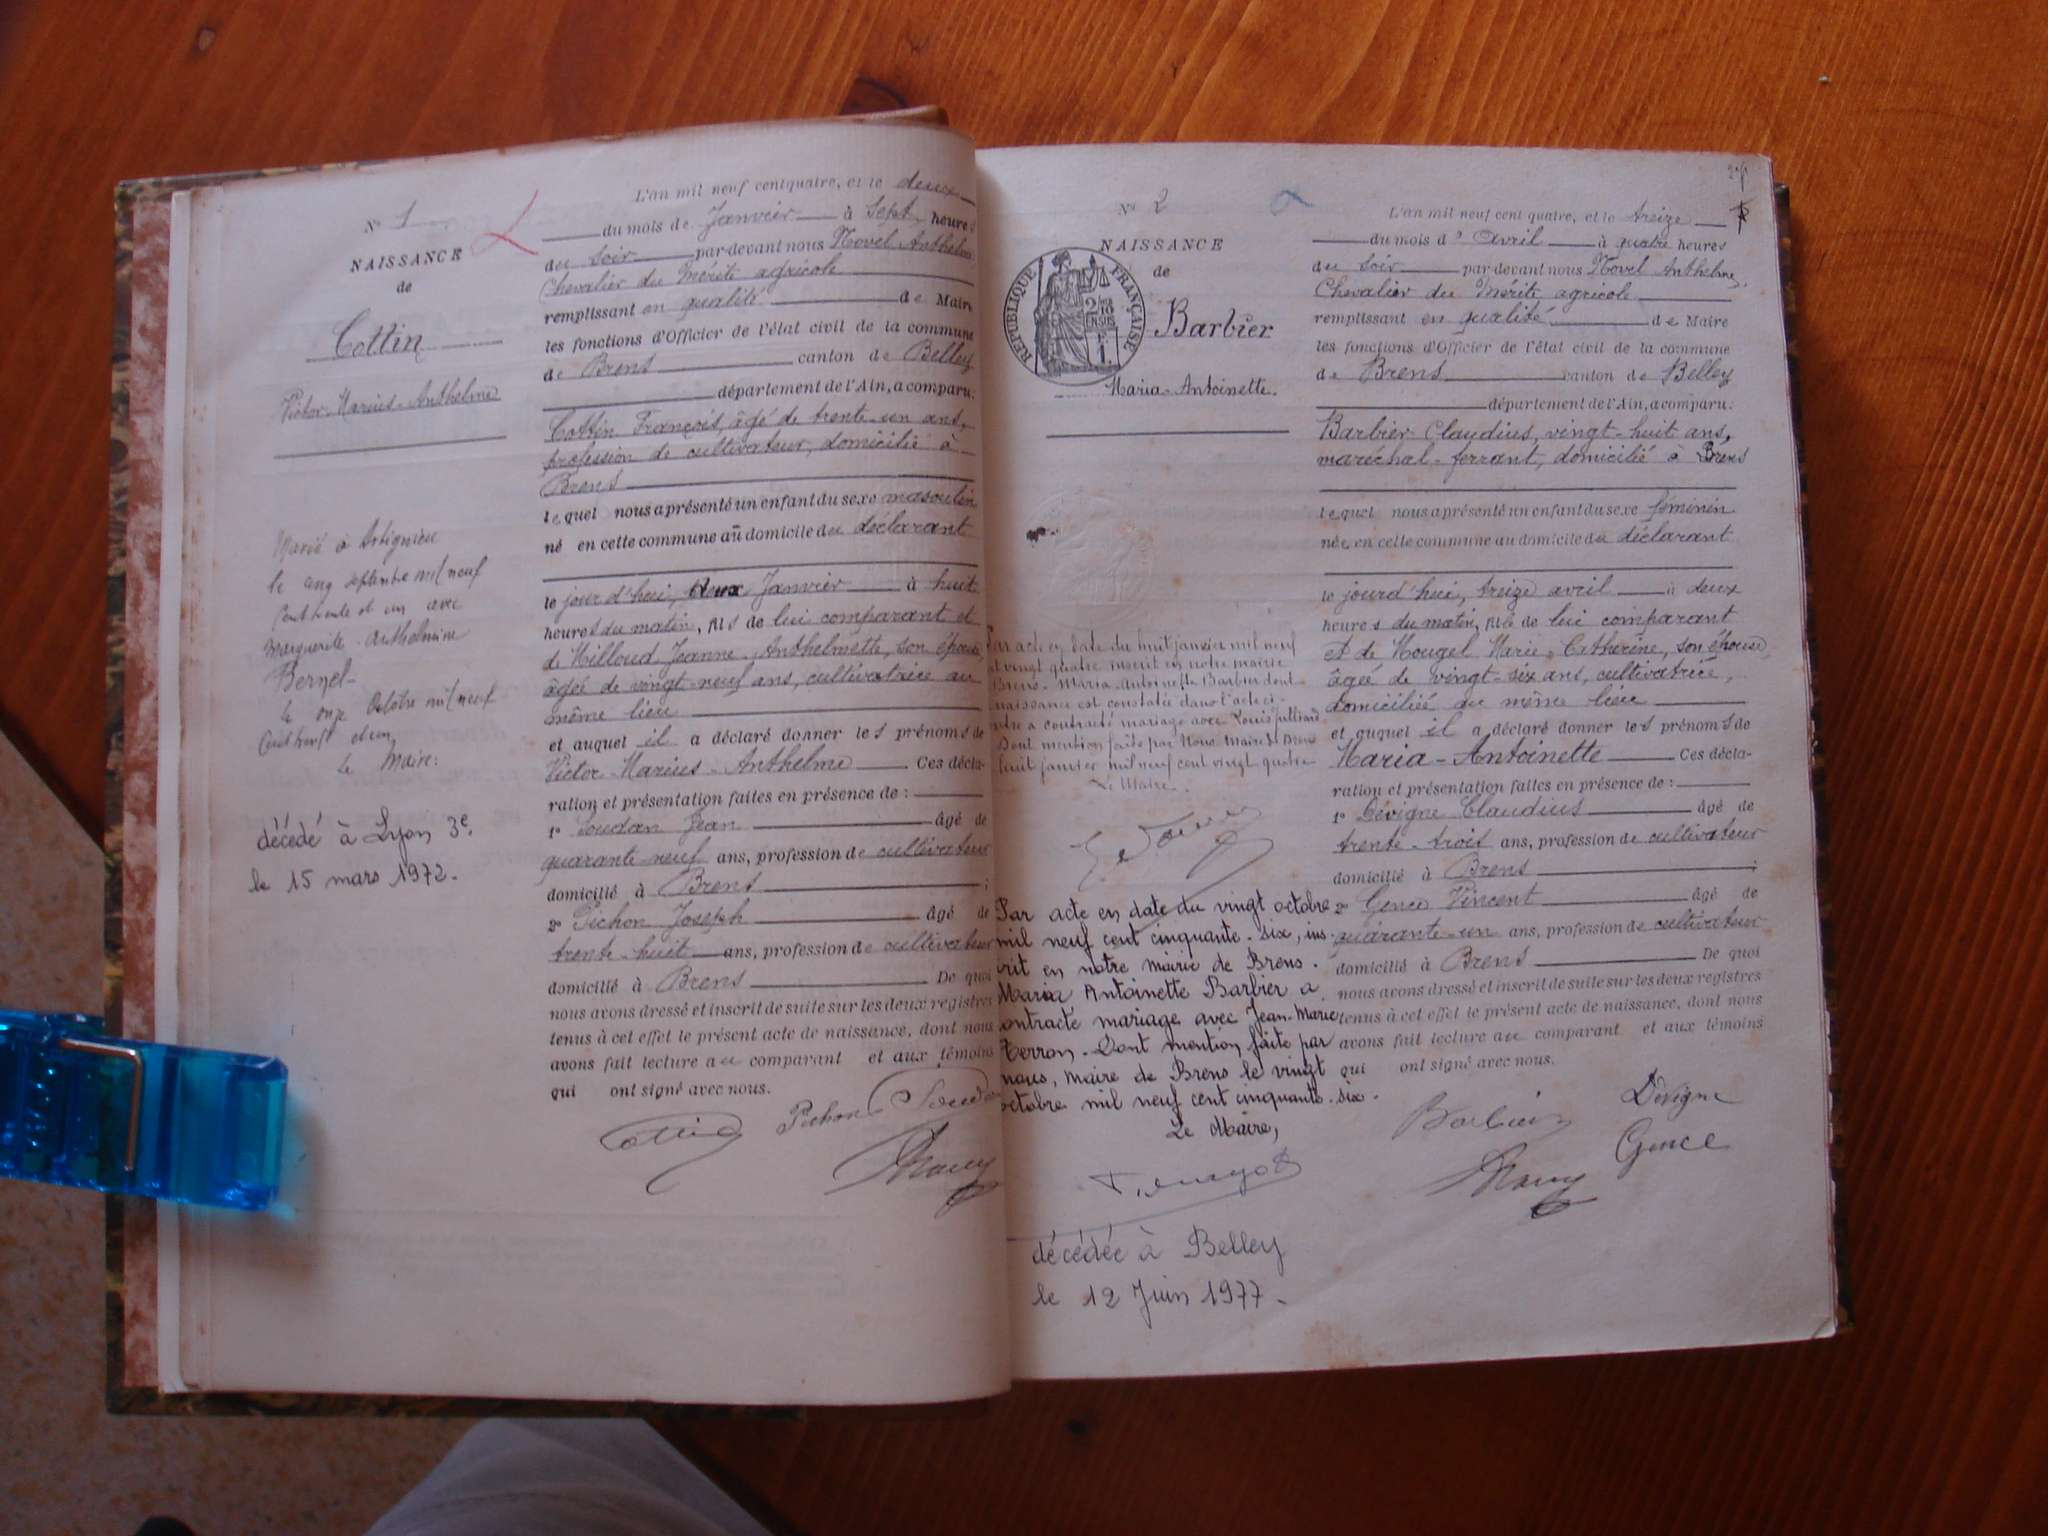 N° 1
NAISSANCE
de
Cottin
Victor-Marius-Anthelme
Marié à Artignieu
le cinq septembre mil neuf
cent trente et un avec
Marguerite-Anthelmine
Bernel
le onze Octobre mil neuf
cent trente et un
Le Maire:
décédé à Lyon 3e.
le 15 mars 1972.
L'an mil neuf cent quatre, et le deux
du mois de Janvier à Sept heures
du soir par-devant nous Novel Anthelme
Chevalier du Mérite agricole
remplissant en qualité de Maire
les fonctions d'Officier de l'état civil de la commune
de Brens canton de Belley
département de l'Ain, a comparu:
Cottin François, âgé de trente-un ans,
profession de cultivateur, domicilié à
Brens
lequel nous a présenté un enfant du sexe masculin
né en cette commune au domicile du déclarant
le jourd'hui, deux Janvier à huit
heures du matin, fils de lui comparant et
de Milloud Jeanne-Anthelmette, son épouse,
âgée de vingt-neuf ans, cultivatrice au
même lieu
et auquel il a déclaré donner les prénoms de
Victor-Marius-Anthelme Ces décla-
ration et présentation faites en présence de :
1° Soudan Jean âgé de
quarante-neuf ans, profession de cultivateur
domicilié à Brens ;
2° Pichon Joseph âgé de
trente-huit ans, profession de cultivateur
domicilié à Brens De quoi
nous avons dressé et inscrit de suite sur les deux registres
tenus à cet effet le présent acte de naissance, dont nous
avons fait lecture au comparant et aux témoins
qui ont signé avec nous.
Cottin Pichon Soudan
N° 2
NAISSANCE
de
RÉPUBLIQUE FRANÇAISE
Barbier
Maria-Antoinette.
Par acte en date du huit janvier mil neuf
cent vingt quatre inscrit en notre mairie
Brens. Maria-Antoinette Barbier dont
naissance est constatée dans l'acte ci-
contre a contracté mariage avec Louis Julliand
Dont mention faite par Nous Maire de Brens
huit janvier mil neuf cent vingt quatre
Le Maire.
Par acte en date du vingt octobre
mil neuf cent cinquante-six, ins-
crit en notre mairie de Brens.
Maria Antoinette Barbier a
contracté mariage avec Jean-Marie
Terron. Dont mention faite par
nous, Maire de Brens le vingt
octobre mil neuf cent cinquante-six.
Le Maire,
décédée à Belley
le 12 Juin 1977.
L'an mil neuf cent quatre, et le treize
du mois d'avril à quatre heures
du soir par-devant nous Novel Anthelme,
Chevalier du Mérite agricole
remplissant en qualité de Maire
les fonctions d'Officier de l'état civil de la commune
de Brens canton de Belley
département de l'Ain, a comparu:
Barbier Claudius, vingt-huit ans,
maréchal-ferrant, domicilié à Brens
lequel nous a présenté un enfant du sexe féminin
née en cette commune au domicile du déclarant
le jourd'hui, treize avril à deux
heures du matin, fille de lui comparant
et de Mougel Marie-Catherine, son épouse
âgée de vingt-six ans, cultivatrice,
domiciliée au même lieu
et auquel il a déclaré donner les prénoms de
Maria-Antoinette Ces décla-
ration et présentation faites en présence de :
1° Dévigne Claudius âgé de
trente-trois ans, profession de cultivateur
domicilié à Brens ;
2° Gence Vincent âgé de
quarante-un ans, profession de cultivateur
domicilié à Brens De quoi
nous avons dressé et inscrit de suite sur les deux registres
tenus à cet effet le présent acte de naissance, dont nous
avons fait lecture au comparant et aux témoins
qui ont signé avec nous.
Barbier Dévigne
Gence